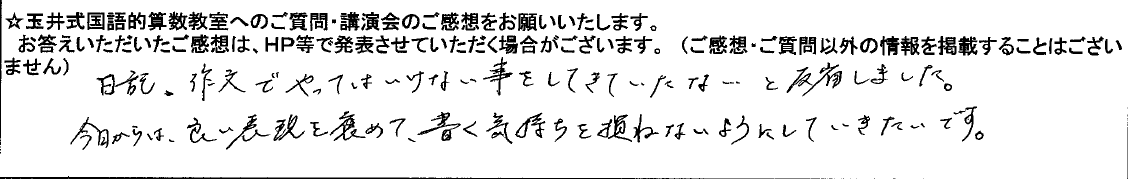 ☆玉井式国語的算数教室へのご質問・講演会のご感想をお願いいたします。
お答えいただいたご感想は、HP等で発表させていただく場合がございます。（ご感想・ご質問以外の情報を掲載することはござい
ません）
日記、作文でやってはいけない事をしてきていたな…と反省しました。
今日からは、良い表現を褒めて、書く気持ちを損ねないようにしていきたいです。